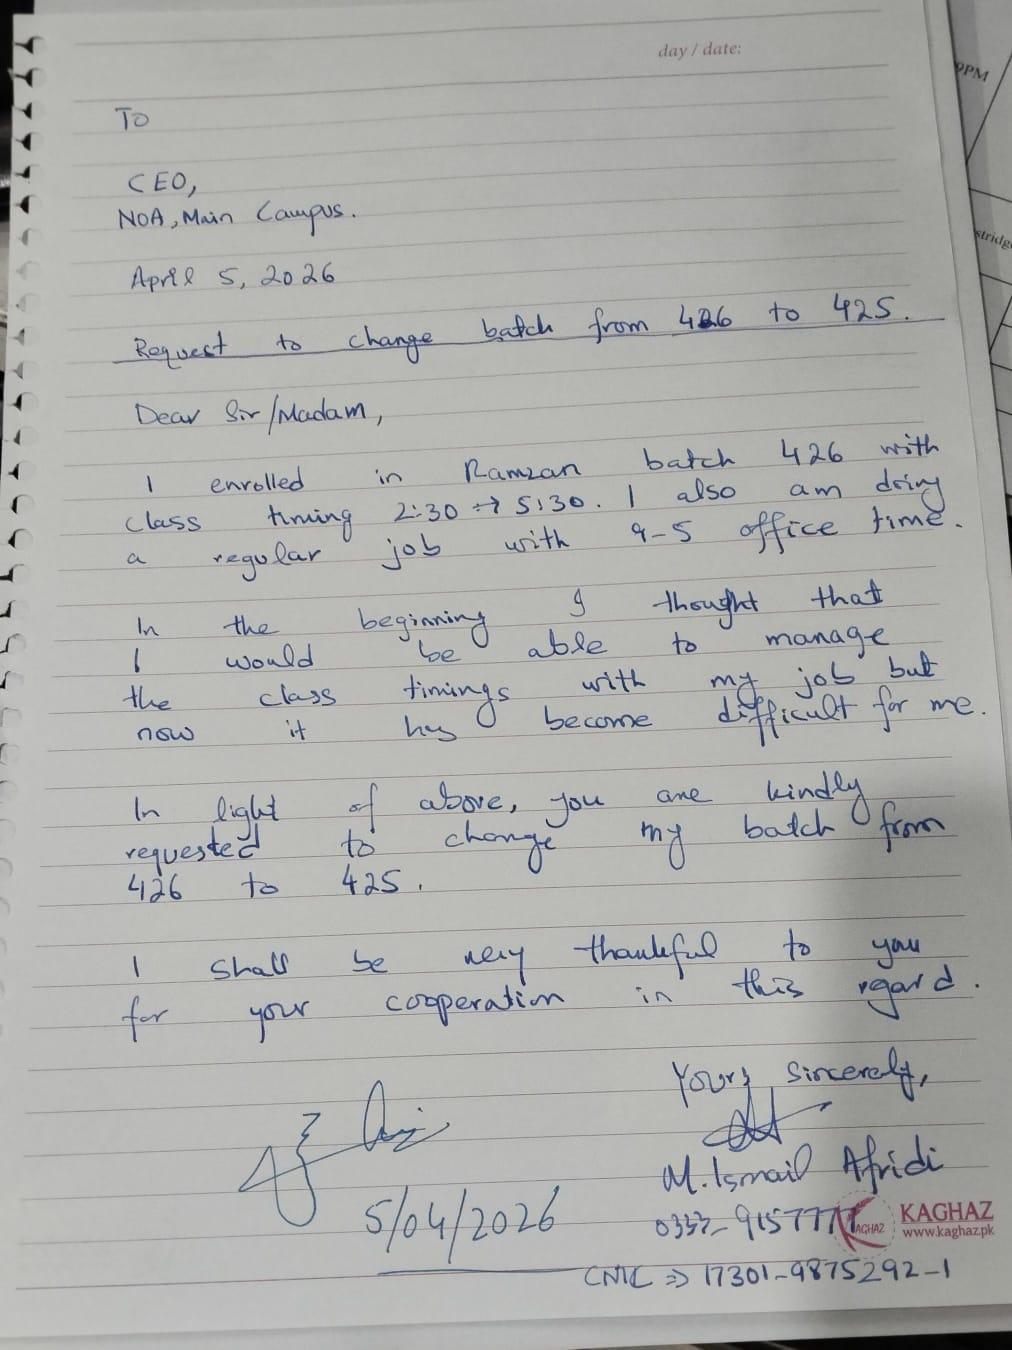 day / date:
To
CEO,
NOA, Main Campus.
April 5, 2026
Request to change batch from 426 to 425.
Dear Sir/Madam,
I enrolled in Ramzan batch 426 with
class timing 2:30 → 5:30. I also am doing
a regular job with 9-5 office time.
In the beginning I thought that
I would be able to manage
the class timings with my job but
now it has become difficult for me.
In light of above, you are kindly
requested to change my batch from
426 to 425.
I shall be very thankful to you
for your cooperation in this regard.
Yours Sincerely,
M. Ismail Afridi
5/04/2026
KAGHAZ
www.kaghaz.pk
CNIC => 17301-9875292-1
9PM